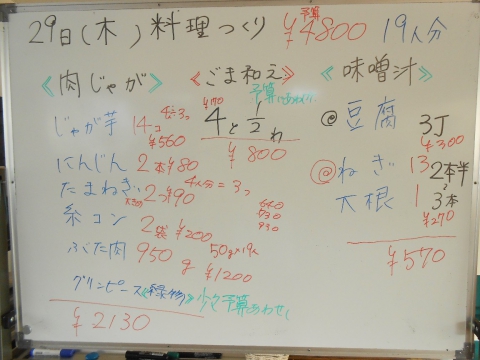 29日(木)料理つくり 予算 ¥4800 19人分
《肉じゃが》
じゃが芋 14コ 4人=3コ
¥560
にんじん 2本 ¥80
たまねぎ 2コ ¥90 4人分=3コ
糸コン 2袋 ¥200
ぶた肉 950g 50g×19人
¥1200
グリンピース《緑物》少々予算あわせて
¥2130
《ごま和え》
予算にあわせ
¥170
4と1/2わ
¥800
《味噌汁》
@豆腐 3丁
¥300
@ねぎ 13 2本半
大根 1 3本
¥270
¥570